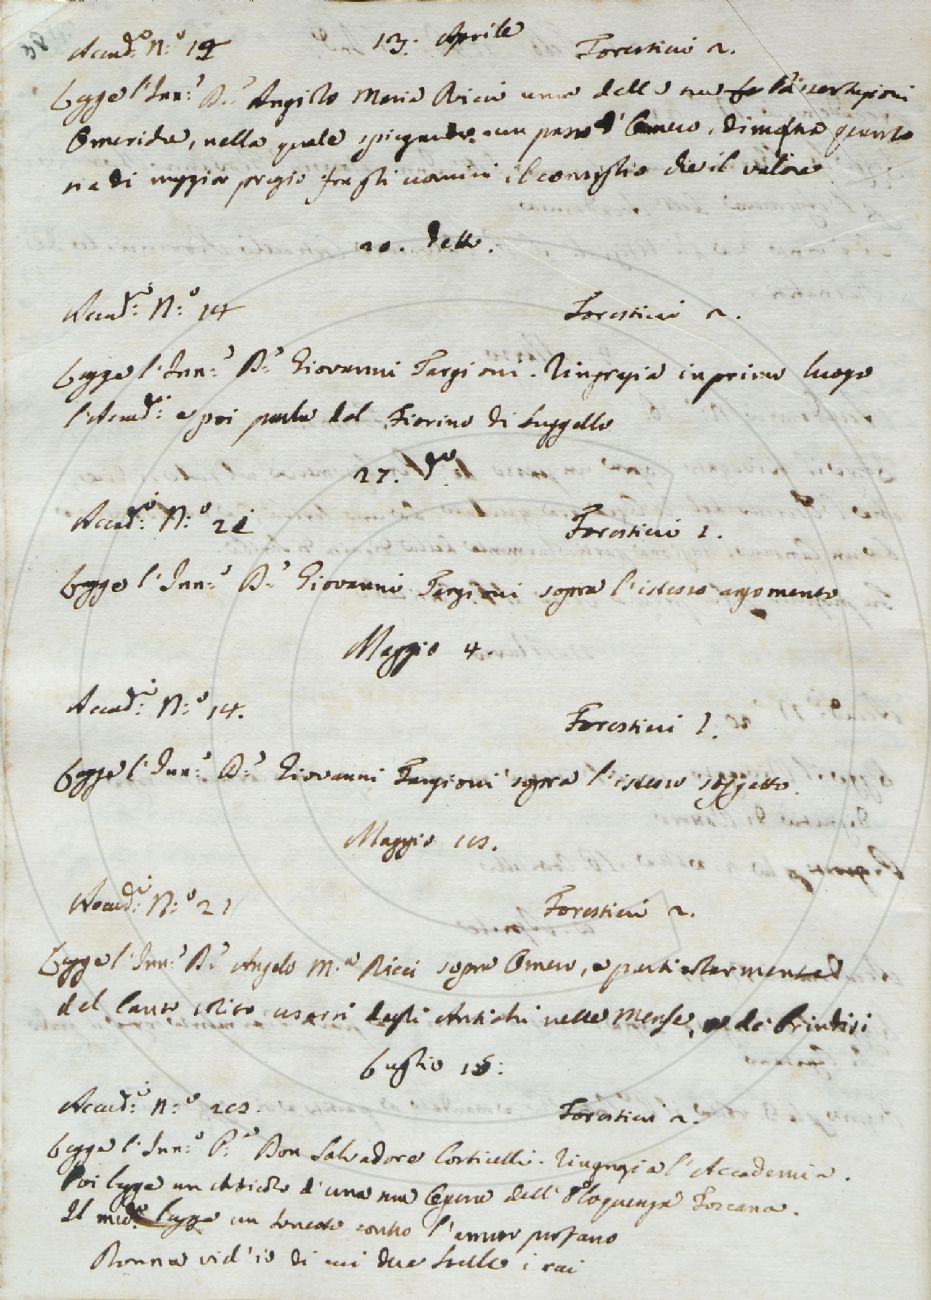 38
13. Aprile
Accad:ci N:o 19 Forestieri 2.
Legge l'Inn:to D:r Angiolo Maria Ricci una delle sue Dissertazioni
Omeriche, nella quale spiegando un passo d'Omero, dimostra quanto
sia di maggior pregio fra gli uomini il consiglio che il valore
20. detto.
Accad:ci N:o 14 Forestieri 2.
Legge l'Inn:to D:r Giovanni Targioni. Ringrazia in primo luogo
l'Accad:a e poi parla del Fiorino di Suggello
27. d:o
Accad:ci N:o 21 Forestieri 1.
Legge l'Inn:to D:r Giovanni Targioni sopra l'istesso argomento
Maggio 4.
Accad:ci N:o 14. Forestieri 1.
Legge l'Inn:to D:r Giovanni Targioni sopra l'istesso soggetto.
Maggio
Accad:ci N:o 21 Forestieri 2.
Legge l'Inn:to D:r Angelo M:a Ricci sopra Omero, e particolarmente
del Canto solito usarsi degli Antichi nelle Mense, e de' Brindisi
Luglio 15:
Accad:ci N:o Forestieri 2.
Legge l'Inn:to P:e Don Salvadore Corticelli. Ringrazia l'Accademia.
Poi legge un Articolo d'una sua Opera dell'Eloquenza Toscana.
Il med:o legge un Sonetto contro l'amor profano
Donna vid'io di cui due Stelle i rai